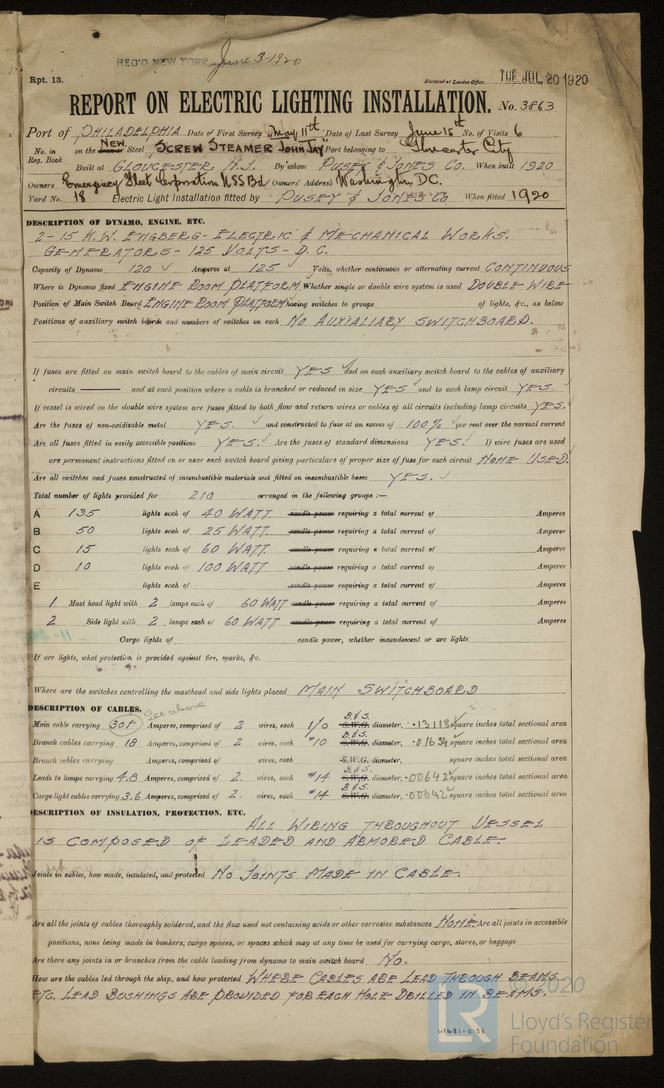 REC'D NEW YORK June 3-1920
Rpt. 13.
Received at London Office. TUE JUL 20 1920
REPORT ON ELECTRIC LIGHTING INSTALLATION. No. 3863
Port of PHILADELPHIA Date of First Survey May 11th Date of Last Survey June 15th No. of Visits 6
No. in Reg. Book on the NEW Steel SCREW STEAMER JOHN JAY Port belonging to Gloucester City
Built at GLOUCESTER, N.J. By whom PUSEY & JONES CO. When built 1920
Owners Emergency Fleet Corporation USSBd Owners' Address Washington DC.
Yard No. 18 Electric Light Installation fitted by PUSEY & JONES CO When fitted 1920
DESCRIPTION OF DYNAMO, ENGINE, ETC.
2-15 K.W. ENGBERG-ELECTRIC & MECHANICAL WORKS.
GENERATORS-125 VOLTS-D.C.
Capacity of Dynamo 120 Amperes at 125 Volts, whether continuous or alternating current CONTINUOUS
Where is Dynamo fixed ENGINE ROOM PLATFORM Whether single or double wire system is used DOUBLE WIRE
Position of Main Switch Board ENGINE ROOM PLATFORM having switches to groups of lights, &c., as below
Positions of auxiliary switch boards and numbers of switches on each NO AUXIALIARY SWITCHBOARD.
If fuses are fitted on main switch board to the cables of main circuit YES and on each auxiliary switch board to the cables of auxiliary
circuits —— and at each position where a cable is branched or reduced in size YES and to each lamp circuit YES.
If vessel is wired on the double wire system are fuses fitted to both flow and return wires or cables of all circuits including lamp circuits YES.
Are the fuses of non-oxidizable metal YES. and constructed to fuse at an excess of 100% per cent over the normal current
Are all fuses fitted in easily accessible positions YES. Are the fuses of standard dimensions YES. If wire fuses are used
are permanent instructions fitted on or near each switch board giving particulars of proper size of fuse for each circuit NONE USED.
Are all switches and fuses constructed of incombustible materials and fitted on incombustible bases YES.
Total number of lights provided for 210 arranged in the following groups :—
A 135 lights each of 40 WATT candle power requiring a total current of Amperes
B 50 lights each of 25 WATT candle power requiring a total current of Amperes
C 15 lights each of 60 WATT candle power requiring a total current of Amperes
D 10 lights each of 100 WATT candle power requiring a total current of Amperes
E lights each of candle power requiring a total current of Amperes
1 Mast head light with 2 lamps each of 60 WATT candle power requiring a total current of Amperes
2 Side light with 2 lamps each of 60 WATT candle power requiring a total current of Amperes
Cargo lights of candle power, whether incandescent or arc lights
If arc lights, what protection is provided against fire, sparks, &c.
Where are the switches controlling the masthead and side lights placed MAIN SWITCHBOARD
DESCRIPTION OF CABLES. See above
Main cable carrying 30+ Amperes, comprised of 2 wires, each 1/0 B.&S. S.W.G. diameter, .13118 square inches total sectional area
Branch cables carrying 18 Amperes, comprised of 2 wires, each #10 B.&S. S.W.G. diameter, .01634 square inches total sectional area
Branch cables carrying Amperes, comprised of wires, each S.W.G. diameter, square inches total sectional area
Leads to lamps carrying 4.8 Amperes, comprised of 2. wires, each #14 B.&S. S.W.G. diameter, .00642 square inches total sectional area
Cargo light cables carrying 3.6 Amperes, comprised of 2. wires, each #14 B.&S. S.W.G. diameter, .00642 square inches total sectional area
DESCRIPTION OF INSULATION, PROTECTION, ETC.
ALL WIRING THROUGHOUT VESSEL
IS COMPOSED OF LEADED AND ARMORED CABLE.
Joints in cables, how made, insulated, and protected NO JOINTS MADE IN CABLE.
Are all the joints of cables thoroughly soldered, and the flux used not containing acids or other corrosive substances NONE. Are all joints in accessible
positions, none being made in bunkers, cargo spaces, or spaces which may at any time be used for carrying cargo, stores, or baggage
Are there any joints in or branches from the cable leading from dynamo to main switch board NO.
How are the cables led through the ship, and how protected WHERE CABLES ARE LEAD THROUGH BEAMS
ETC. LEAD BUSHINGS ARE PROVIDED FOR EACH HOLE DRILLED IN BEAMS.
© 2020
LR
Lloyd's Register
Foundation
W1681-0106